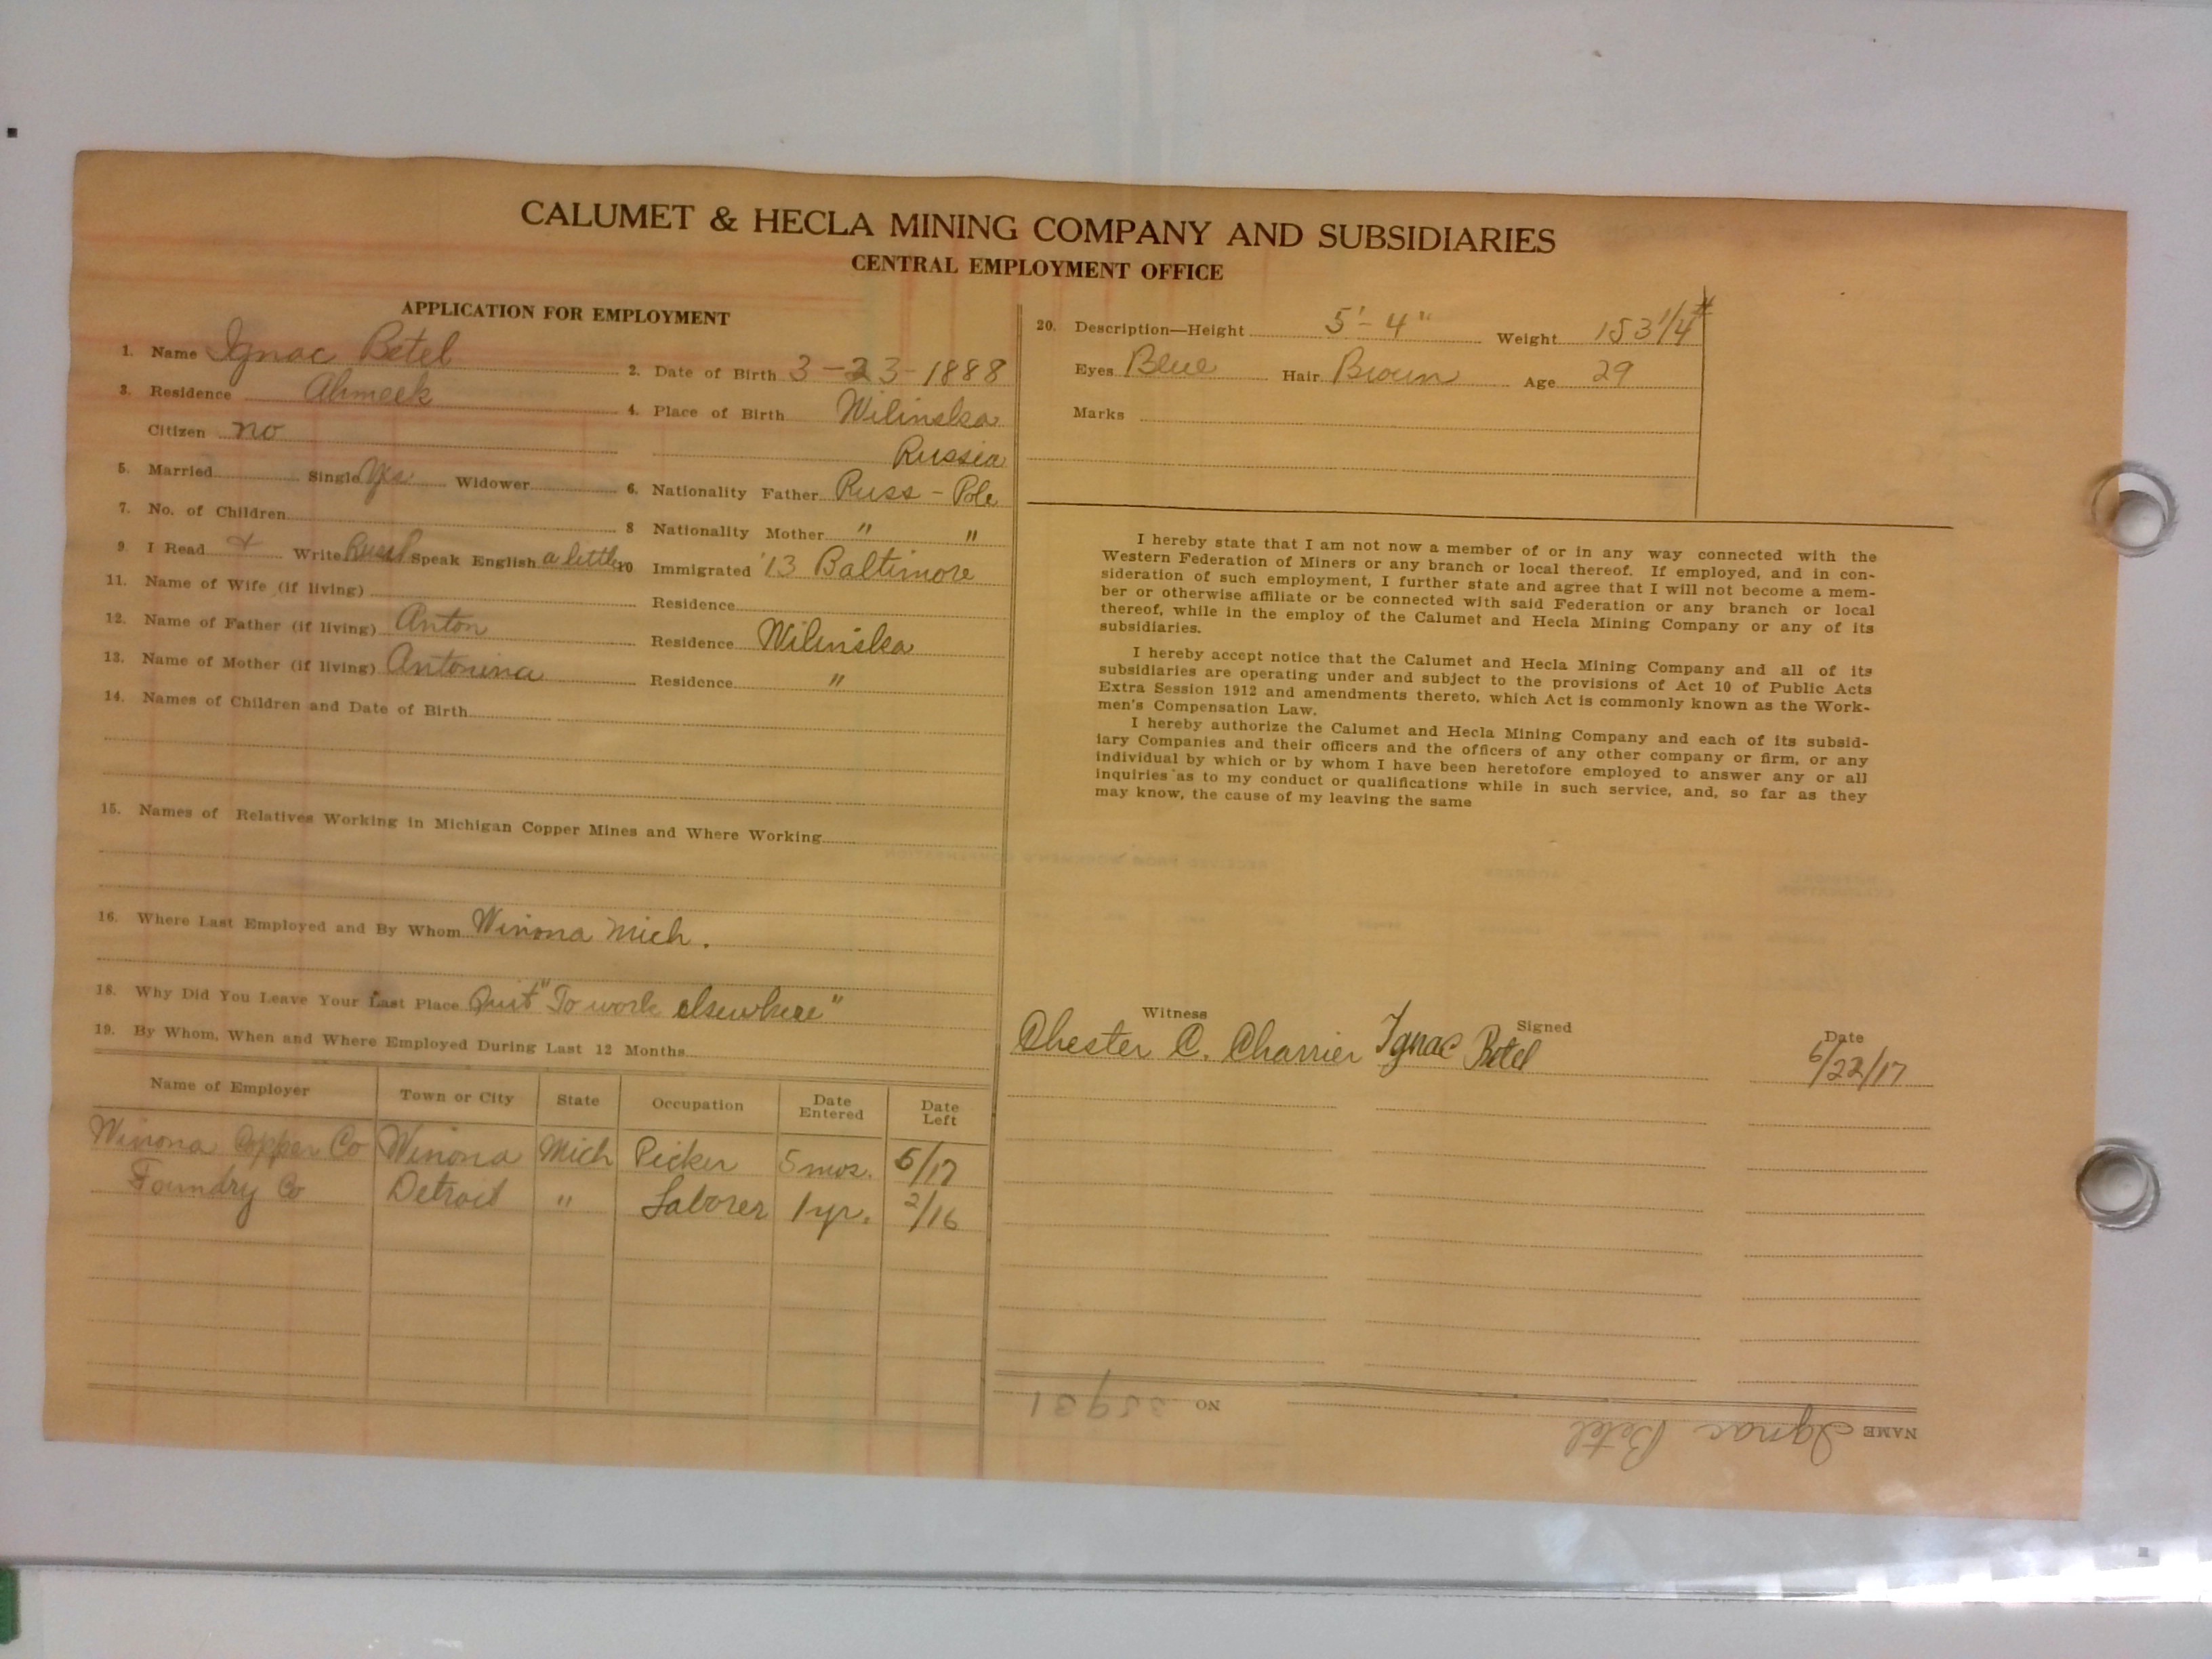 CALUMET & HECLA MINING COMPANY AND SUBSIDIARIES
CENTRAL EMPLOYMENT OFFICE
APPLICATION FOR EMPLOYMENT
1. Name Ignac Betel 2. Date of Birth 3-23-1888
3. Residence Ahmeek 4. Place of Birth Wilinska
Citizen no Russia
5. Married Single Yes Widower 6. Nationality Father Russ - Pole
7. No. of Children 8 Nationality Mother " "
9. I Read & Write Russ Speak English a little 10 Immigrated '13 Baltimore
11. Name of Wife (if living) Residence
12. Name of Father (if living) Anton Residence Wilinska
13. Name of Mother (if living) Antonina Residence "
14. Names of Children and Date of Birth
15. Names of Relatives Working in Michigan Copper Mines and Where Working
16. Where Last Employed and By Whom Winona Mich.
18. Why Did You Leave Your Last Place Quit "To work elsewhere"
19. By Whom, When and Where Employed During Last 12 Months
Name of Employer Town or City State Occupation Date Entered Date Left
Winona Copper Co Winona Mich Picker 5 mos. 5/17
Foundry Co Detroit " Laborer 1 yr. 2/16
20. Description—Height 5'-4" Weight 153 1/4 #
Eyes Blue Hair Brown Age 29
Marks
I hereby state that I am not now a member of or in any way connected with the
Western Federation of Miners or any branch or local thereof. If employed, and in con-
sideration of such employment, I further state and agree that I will not become a mem-
ber or otherwise affiliate or be connected with said Federation or any branch or local
thereof, while in the employ of the Calumet and Hecla Mining Company or any of its
subsidiaries.
I hereby accept notice that the Calumet and Hecla Mining Company and all of its
subsidiaries are operating under and subject to the provisions of Act 10 of Public Acts
Extra Session 1912 and amendments thereto, which Act is commonly known as the Work-
men's Compensation Law.
I hereby authorize the Calumet and Hecla Mining Company and each of its subsid-
iary Companies and their officers and the officers of any other company or firm, or any
individual by which or by whom I have been heretofore employed to answer any or all
inquiries as to my conduct or qualifications while in such service, and, so far as they
may know, the cause of my leaving the same
Witness Signed Date
Chester C. Charrier Ignac Betel 5/22/17
NAME Ignac Betel NO 35931